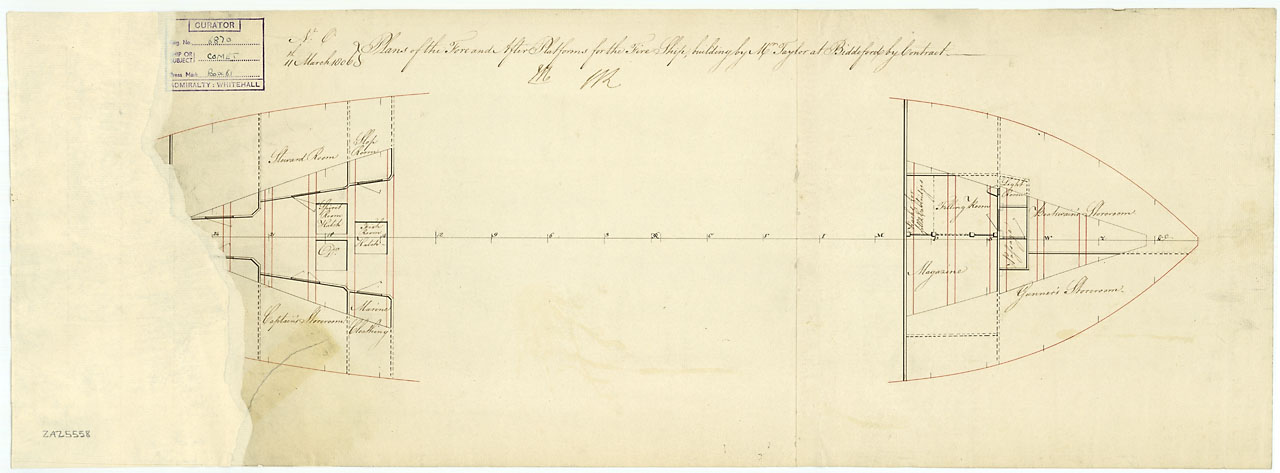 CURATOR
Reg. No. 6870
SHIP OR SUBJECT COMET
Press Mark Box 61
ADMIRALTY: WHITEHALL
No. 6
11 March 1806
Plans of the Fore and After Platforms for the Fire Ship, building by Mr. Taylor at Biddeford by Contract
Steward Room
Slop Room
Spirit Room Hatch
Fish Room Hatch
Captain's Storeroom
Marine Cloathing
Filling Room
Light Room
Passage
Boatswain's Storeroom
Magazine
Gunner's Storeroom
ZAZ5558